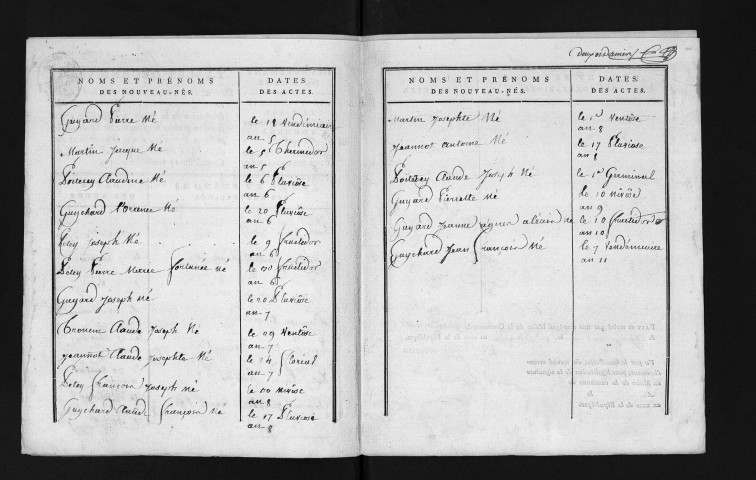 NOMS ET PRÉNOMS
DES NOUVEAU-NÉS.
DATES
DES ACTES.
Guyard Pierre Né
le 18 Vendémiaire
an 5
Martin Jacque Né
le 5 Thermidor
an 5
Claudine Né
le 6 Pluviôse
an 6
Guychard Né
le 20 Pluviôse
an 6
Poley joseph Né
le 9 fructidor
an 6
Poley Pierre Marie fortunée né
fructidor
an 6
Guyard Joseph né
le 20 Pluviôse
an 7
Claude Joseph Né
le 29 Ventôse
an 7
Jeannot Claude Josephte Né
le 24 floréal
an 7
Poley françois Joseph né
nivôse
an 8
Guychard Claude françois né
le 17 Pluviôse
an 8
NOMS ET PRÉNOMS
DES NOUVEAU-NÉS.
DATES
DES ACTES.
Martin Josephte Né
le 1er Ventôse
an 8
Jeannot antoine Né
le 17 Pluviôse
an 8
Claude Joseph Né
le 1er Germinal
Guyard Pierrette Né
le 10 nivôse
an 9
Guyard Jeanne né
le 10 fructidor
an 10
Guychard Jean françois Né
le 7 Vendémiaire
an 11